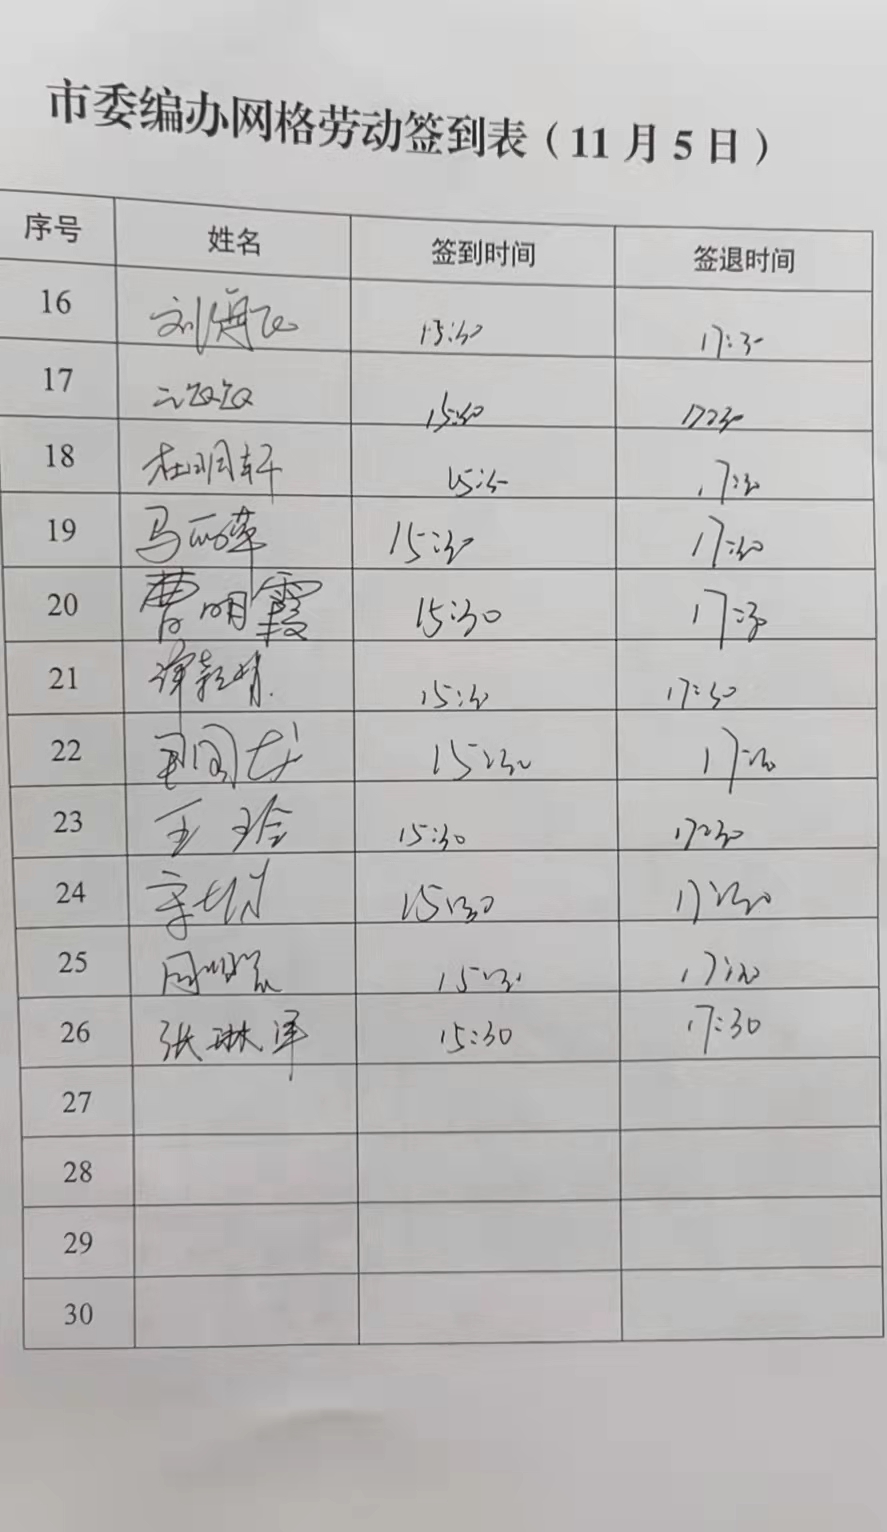 市委编办网格劳动签到表（11月5日）
序号 姓名 签到时间 签退时间
16 15:30 17:30
17 15:30 17:30
18 杜明轩 15:30 17:30
19 马丽萍 15:30 17:30
20 曹明霞 15:30 17:30
21 15:30 17:30
22 15:30 17:30
23 王玲 15:30 17:30
24 15:30 17:30
25 15:30 17:30
26 张琳泽 15:30 17:30
27
28
29
30